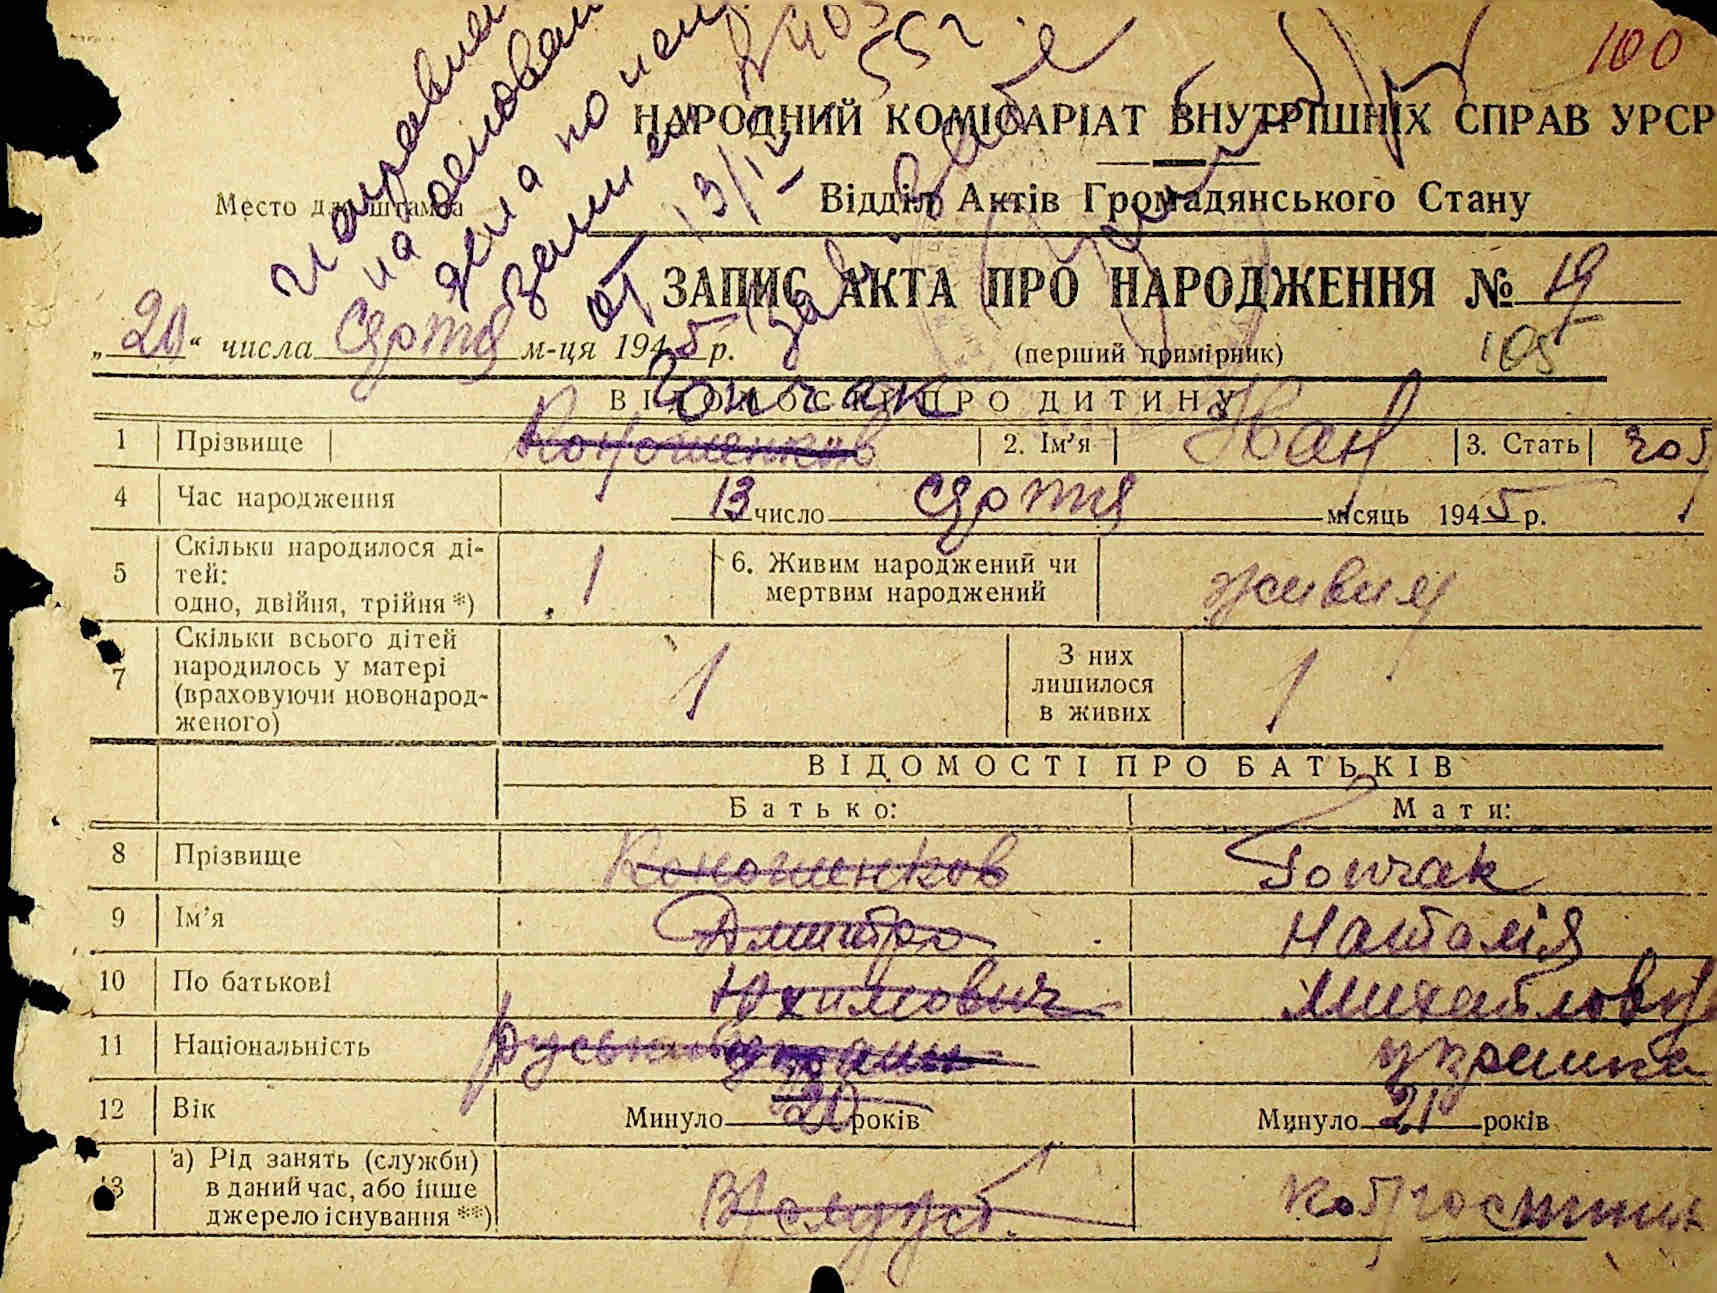 100
исправлен
на основан
дела по чей
записи № 403
от 13/IV 55г
Зав. Загс
НАРОДНИЙ КОМІСАРІАТ ВНУТРІШНІХ СПРАВ УРСР
Место для штампа
Відділ Актів Громадянського Стану
ЗАПИС АКТА ПРО НАРОДЖЕННЯ № 19
„20“ числа серпня м-ця 1945 р. (перший примірник) 105
ВІДОМОСТІ ПРО ДИТИНУ
Гончак
1 Прізвище Коношенков 2. Ім'я Іван 3. Стать чол
4 Час народження 13 число серпня місяць 1945 р.
5 Скільки народилося ді-
тей:
одно, двійня, трійня *) 1 6. Живим народжений чи
мертвим народжений живим
7 Скільки всього дітей
народилось у матері
(враховуючи новонарод-
женого) 1 З них
лишилося
в живих 1
ВІДОМОСТІ ПРО БАТЬКІВ
Батько: Мати:
8 Прізвище Коношенков Гончак
9 Ім'я Дмитро Наталія
10 По батькові Юхимович Михайловна
11 Національність руський українка
12 Вік Минуло 20 років Минуло 21 років
13 а) Рід занять (служби)
в даний час, або інше
джерело існування **)